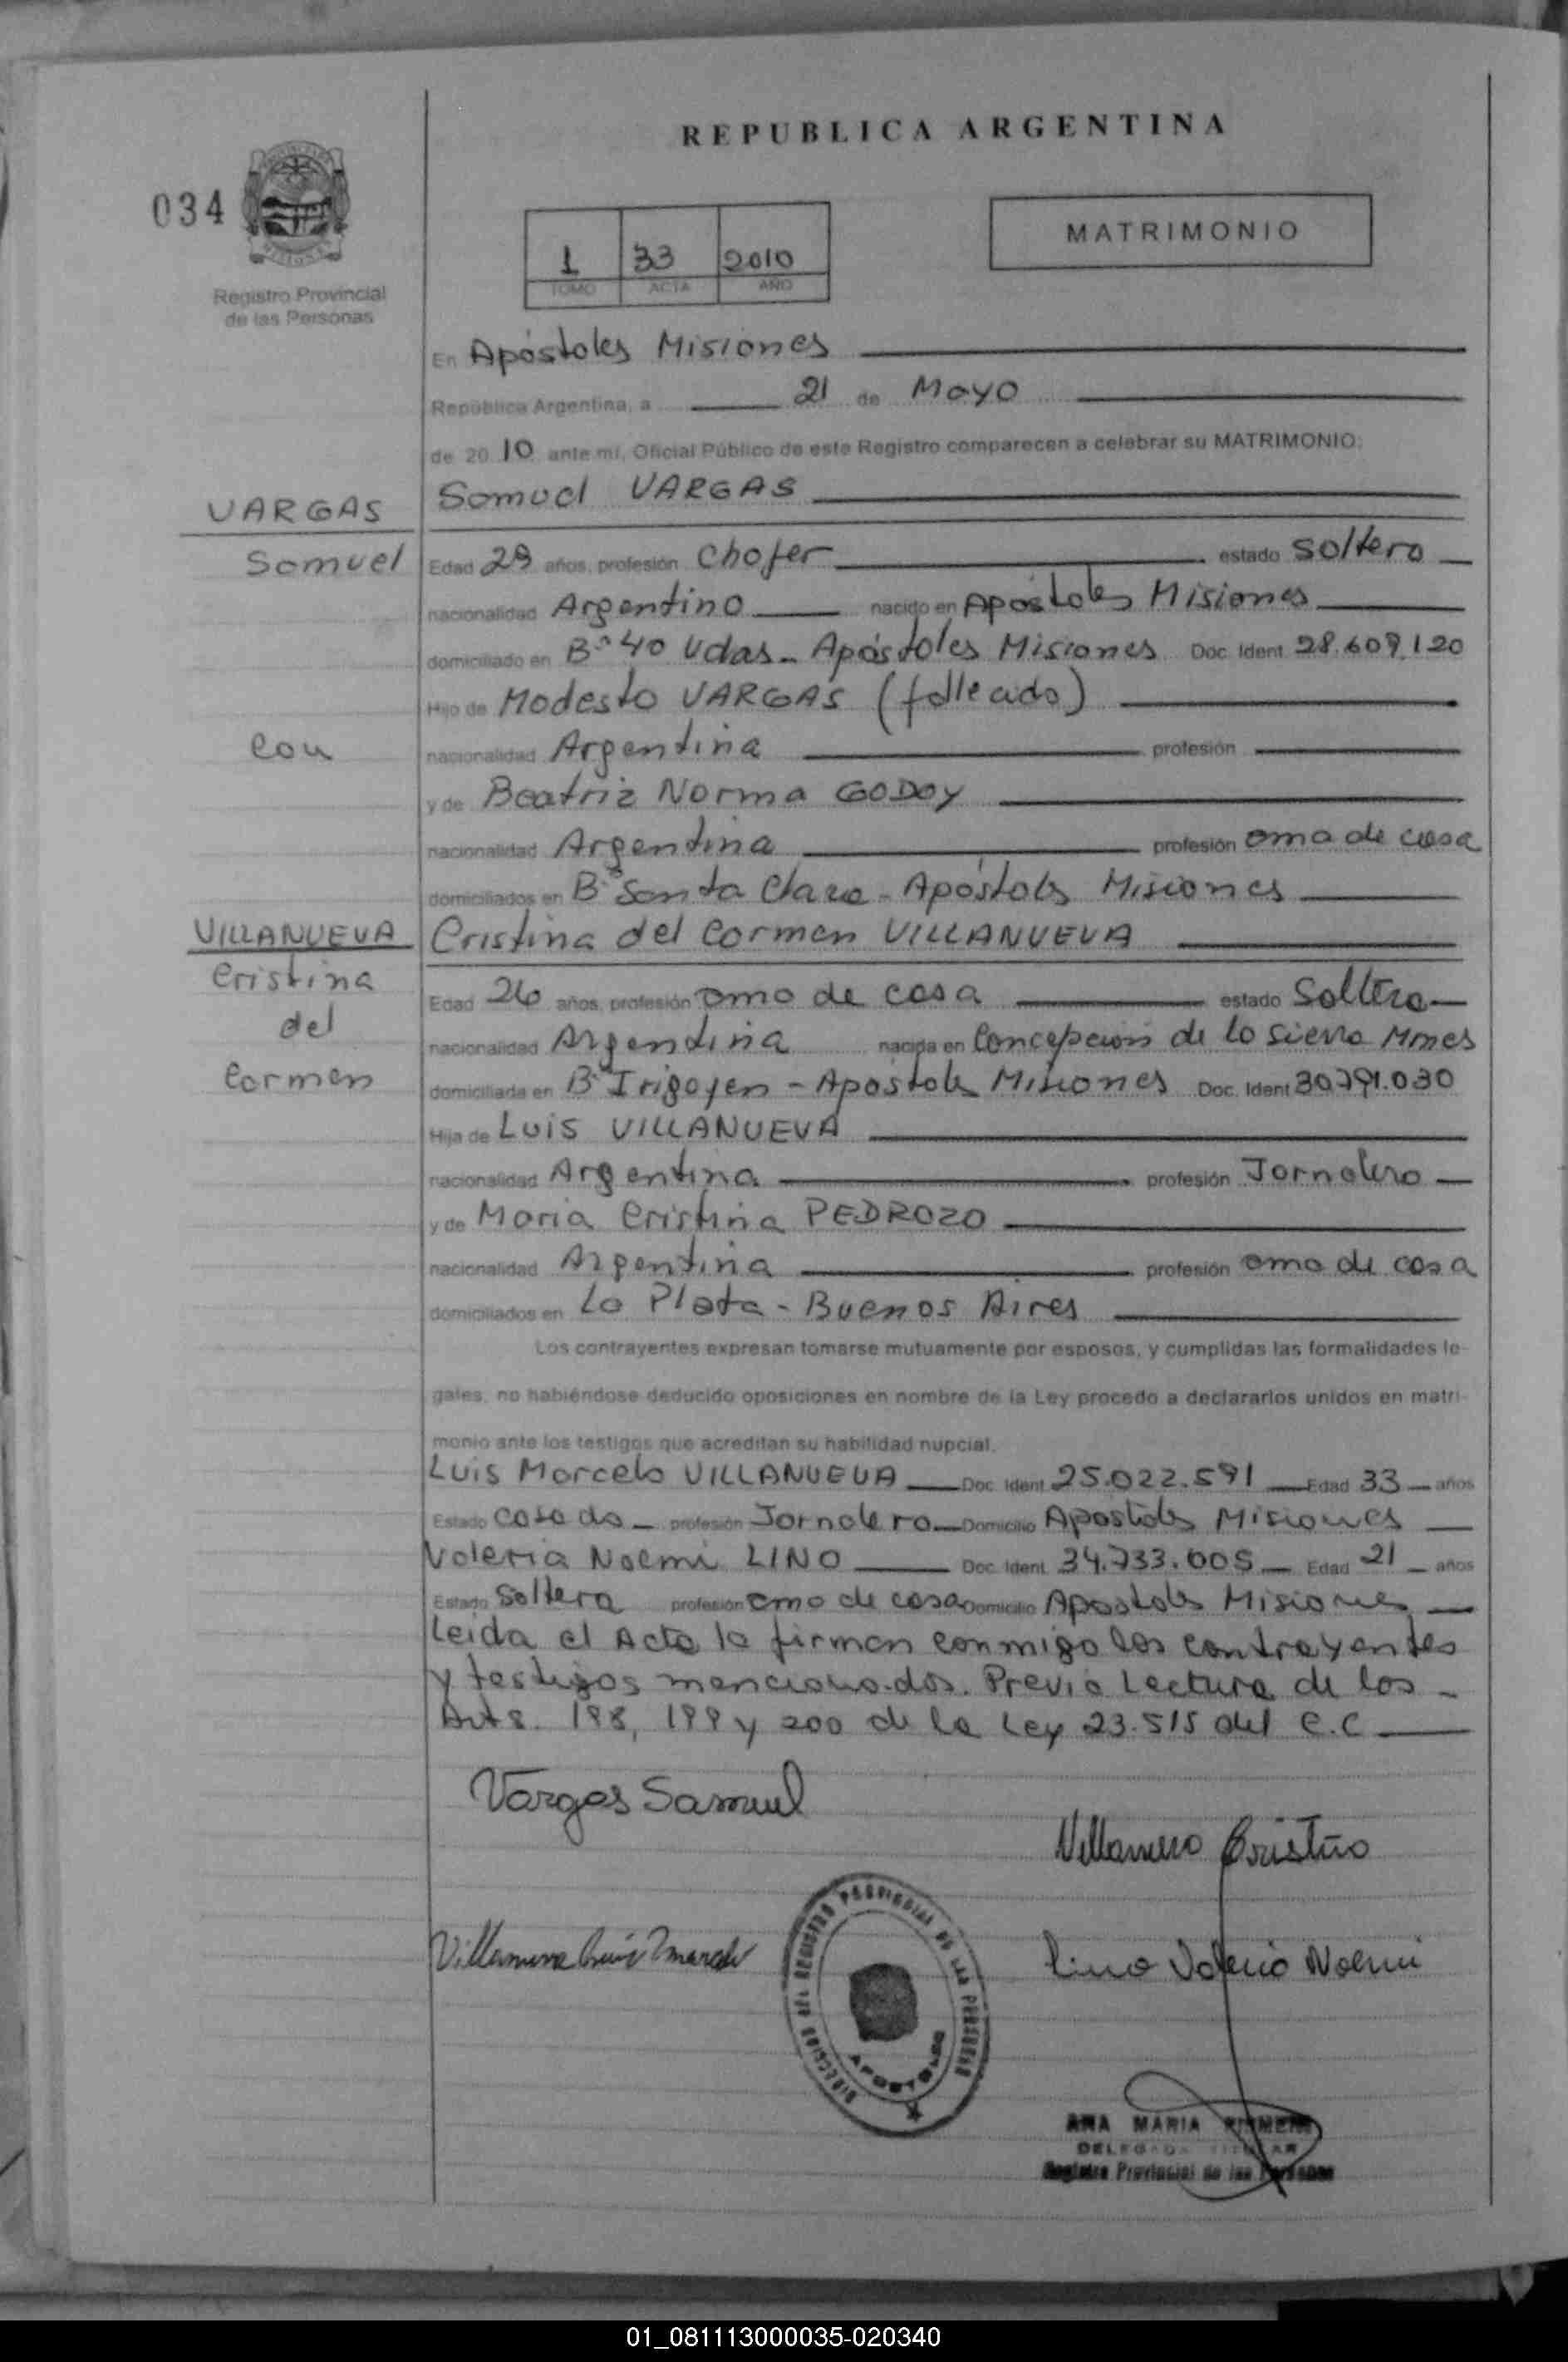 REPUBLICA ARGENTINA
034
MATRIMONIO
1 33 2010
TOMO ACTA AÑO
Registro Provincial
de las Personas
En Apóstoles Misiones
República Argentina, a 21 de Mayo
de 2010 ante mí, Oficial Público de este Registro comparecen a celebrar su MATRIMONIO:
Samuel VARGAS
VARGAS
Samuel
Edad 29 años, profesión Chofer estado Soltero
nacionalidad Argentino nacido en Apóstoles Misiones
domiciliado en B° 40 Vdas - Apóstoles Misiones Doc. Ident. 28.609.120
Hijo de Modesto VARGAS (fallecido)
con
nacionalidad Argentina profesión
y de Beatriz Norma GODOY
nacionalidad Argentina profesión ama de casa
domiciliados en B° Santa Clara - Apóstoles Misiones
VILLANUEVA
Cristina del Carmen VILLANUEVA
Cristina
del
Carmen
Edad 26 años, profesión ama de casa estado Soltera
nacionalidad Argentina nacida en Concepción de la Sierra Mnes
domiciliada en B° Irigoyen - Apóstoles Misiones Doc. Ident. 30.791.030
Hija de Luis VILLANUEVA
nacionalidad Argentina profesión Jornalero
y de Maria Cristina PEDROZO
nacionalidad Argentina profesión ama de casa
domiciliados en La Plata - Buenos Aires
Los contrayentes expresan tomarse mutuamente por esposos, y cumplidas las formalidades le-
gales, no habiéndose deducido oposiciones en nombre de la Ley procedo a declararlos unidos en matri-
monio ante los testigos que acreditan su habilidad nupcial.
Luis Marcelo VILLANUEVA Doc. Ident. 25.022.591 Edad 33 años
Estado casado profesión Jornalero Domicilio Apóstoles Misiones
Valeria Noemi LINO Doc. Ident. 34.733.005 Edad 21 años
Estado Soltera profesión ama de casa Domicilio Apostoles Misiones
Leida el Acta la firman conmigo los contrayentes
y testigos mencionados. Previa Lectura de los
Arts. 198, 199 y 200 de la Ley 23.515 del C.C
Vargas Samuel
Villanueva Cristina
Villanueva Luis Marcelo
Lino Valeria Noemi
DIRECCION DEL REGISTRO PROVINCIAL DE LAS PERSONAS
APOSTOLES
ANA MARIA
DELEGADA TITULAR
Registro Provincial de las Personas
01_081113000035-020340